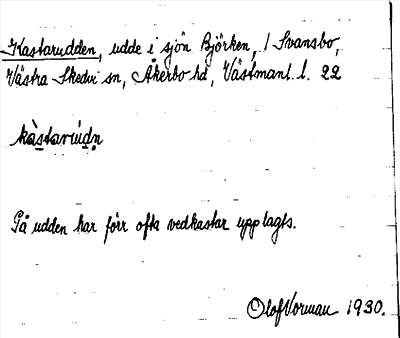 Kastarudden, udde i sjön Björken, / Svansbo,
Västra Skedvi sn, Åkerbo hd, Västmanl. l. 22
kàstarùdn
På udden har förr ofta vedkastar upplagts.
Olof Vorman 1930.